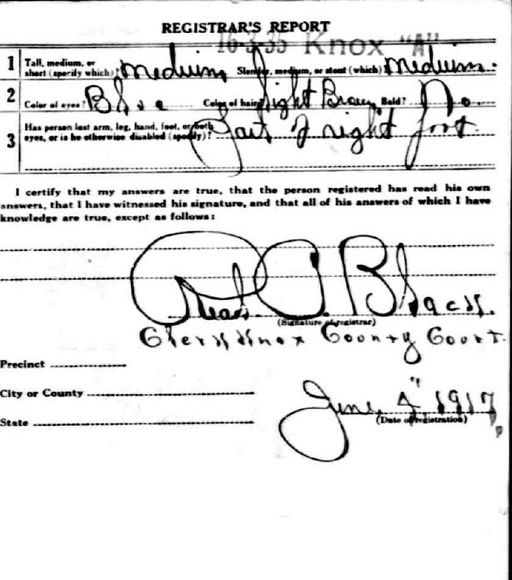 REGISTRAR'S REPORT
16-3-35 Knox "A"
1 Tall, medium, or short (specify which)? medium Slender, medium, or stout (which) medium.
2 Color of eyes? Blue Color of hair light Brown Bald? No.
3 Has person lost arm, leg, hand, foot, or both eyes, or is he otherwise disabled (specify)? Part of right foot
I certify that my answers are true, that the person registered has read his own
answers, that I have witnessed his signature, and that all of his answers of which I have
knowledge are true, except as follows:
Read P. Black.
(Signature of registrar)
Clerk Knox County Court.
Precinct
City or County
June 4" 1917,
State
(Date of registration)